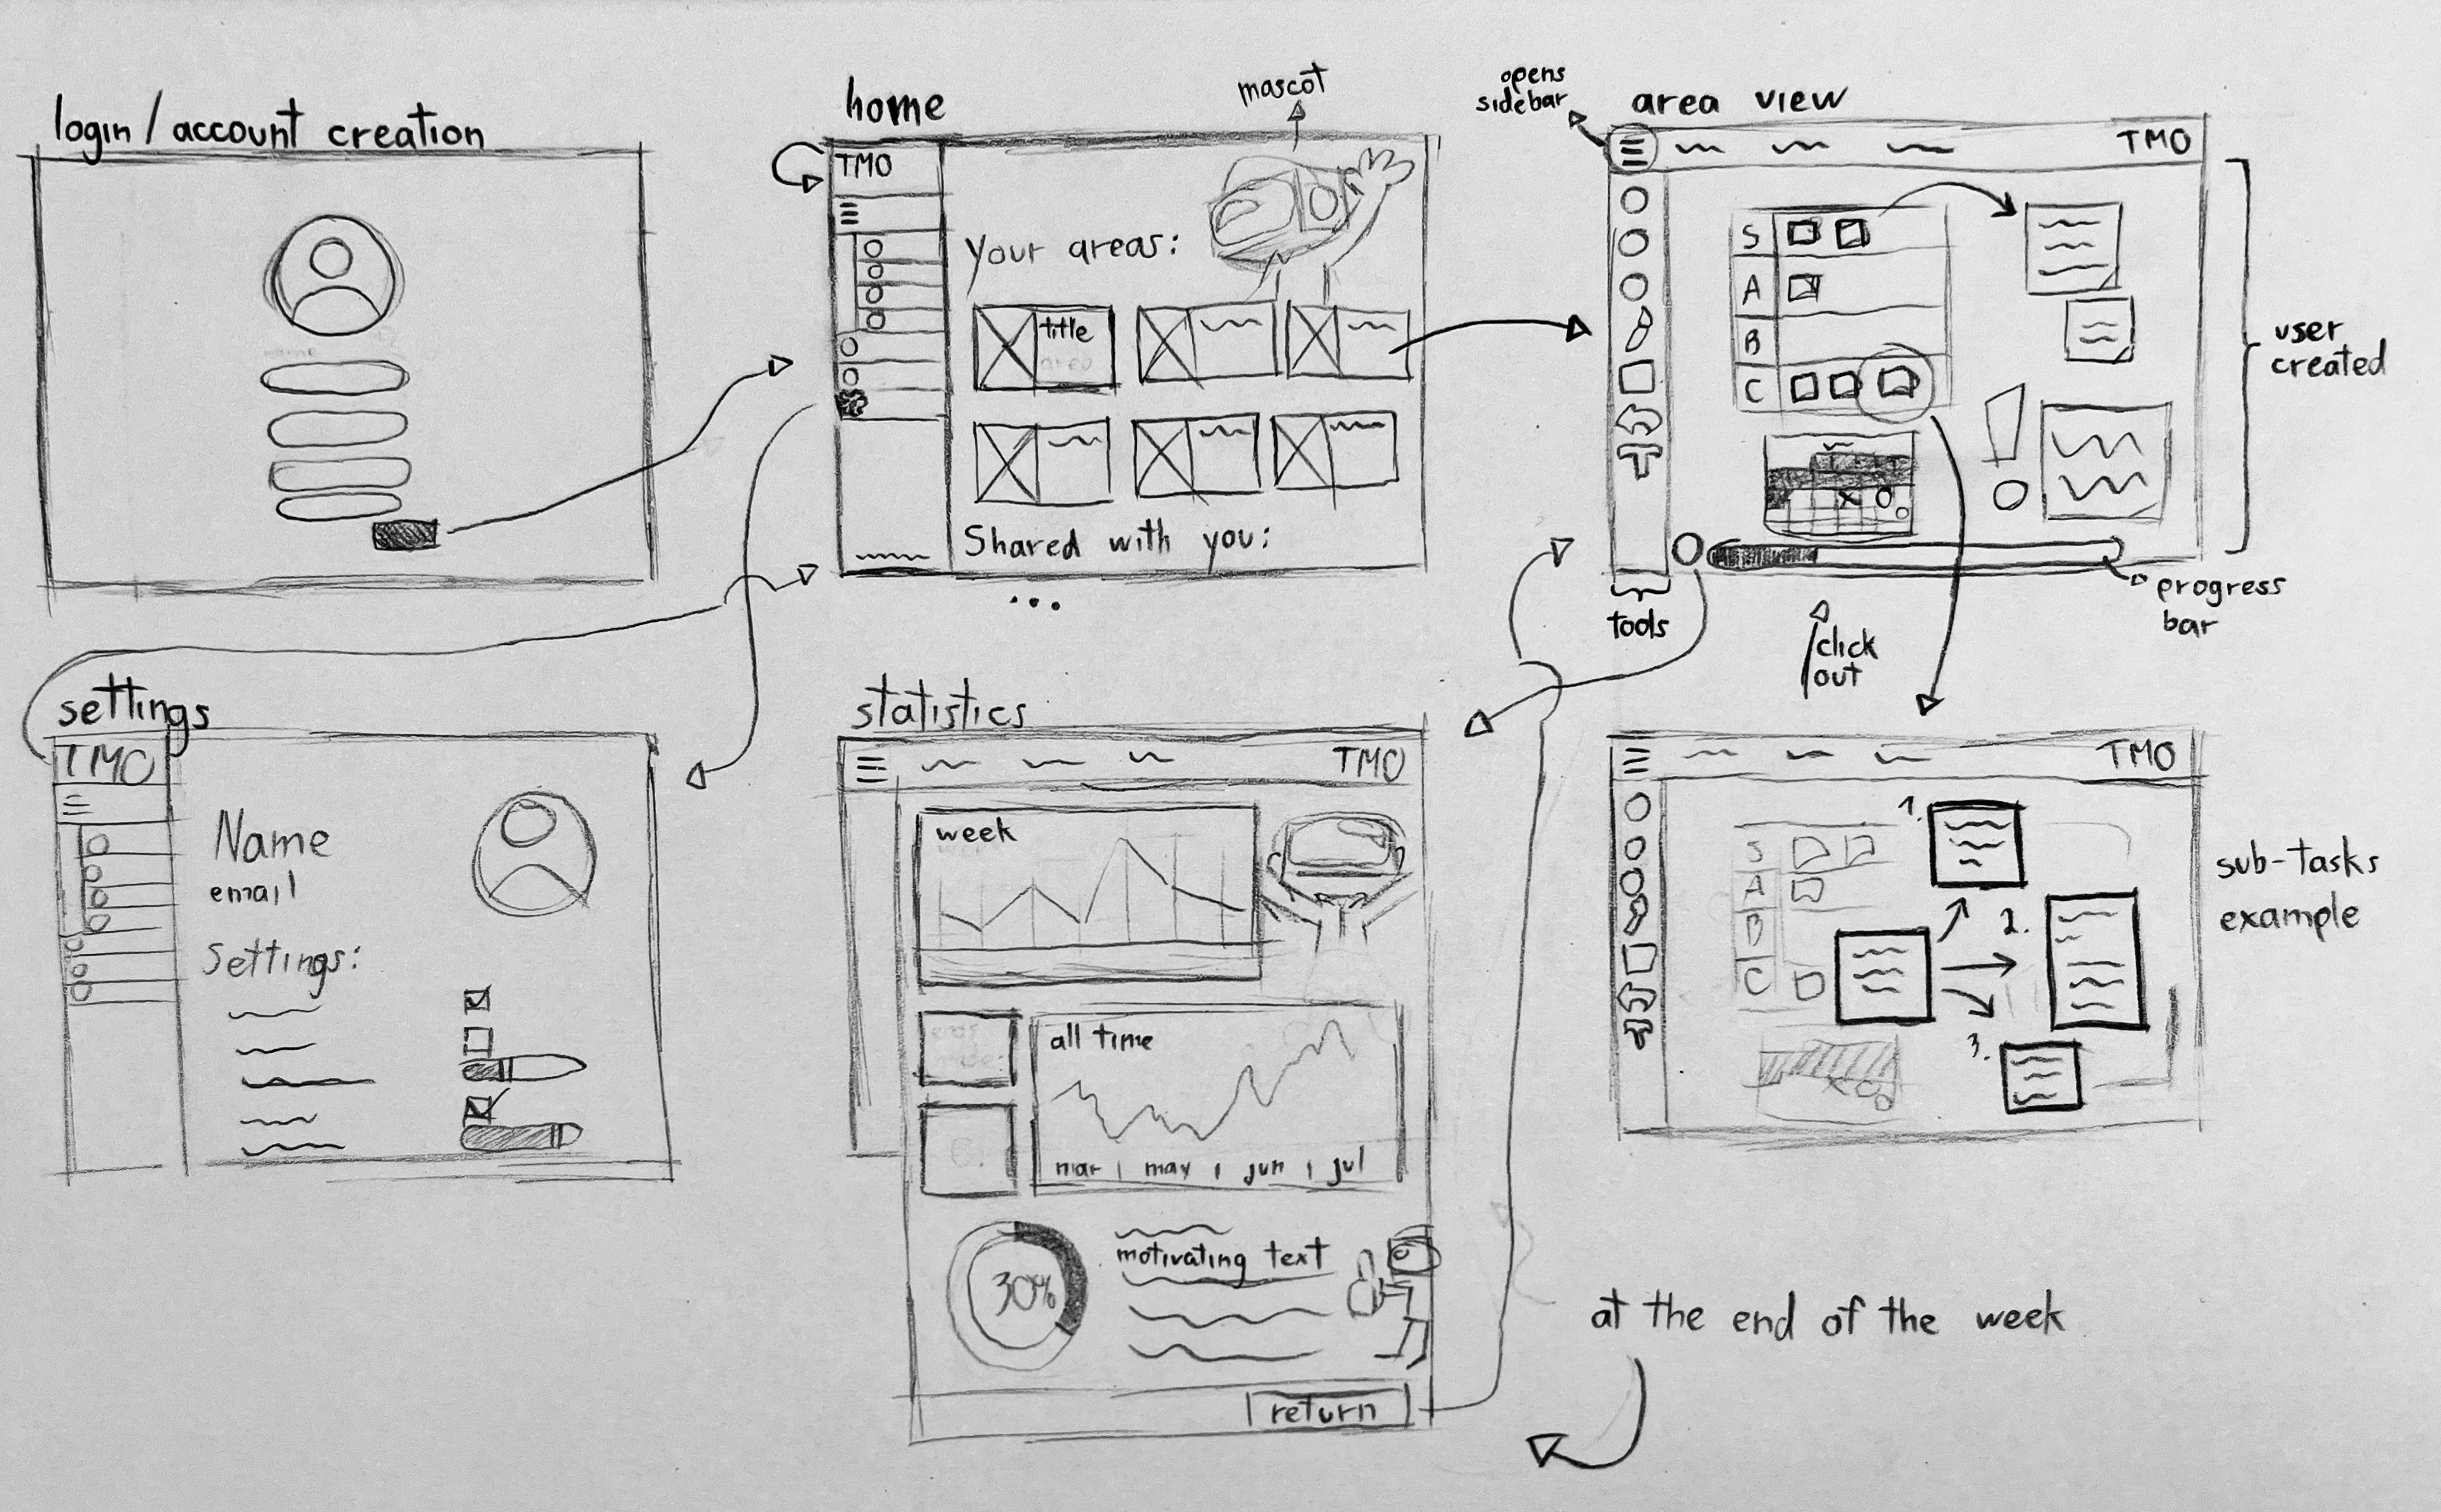 login / account creation
home
TMO
mascot
Your areas:
title
area
Shared with you:
...
opens
sidebar
area view
TMO
S
A
B
C
user
created
progress
bar
tools
click
out
settings
TMO
Name
email
Settings:
statistics
TMO
week
all time
mar | may | jun | jul
30%
motivating text
return
TMO
S
A
B
C
1.
2.
3.
sub-tasks
example
at the end of the week